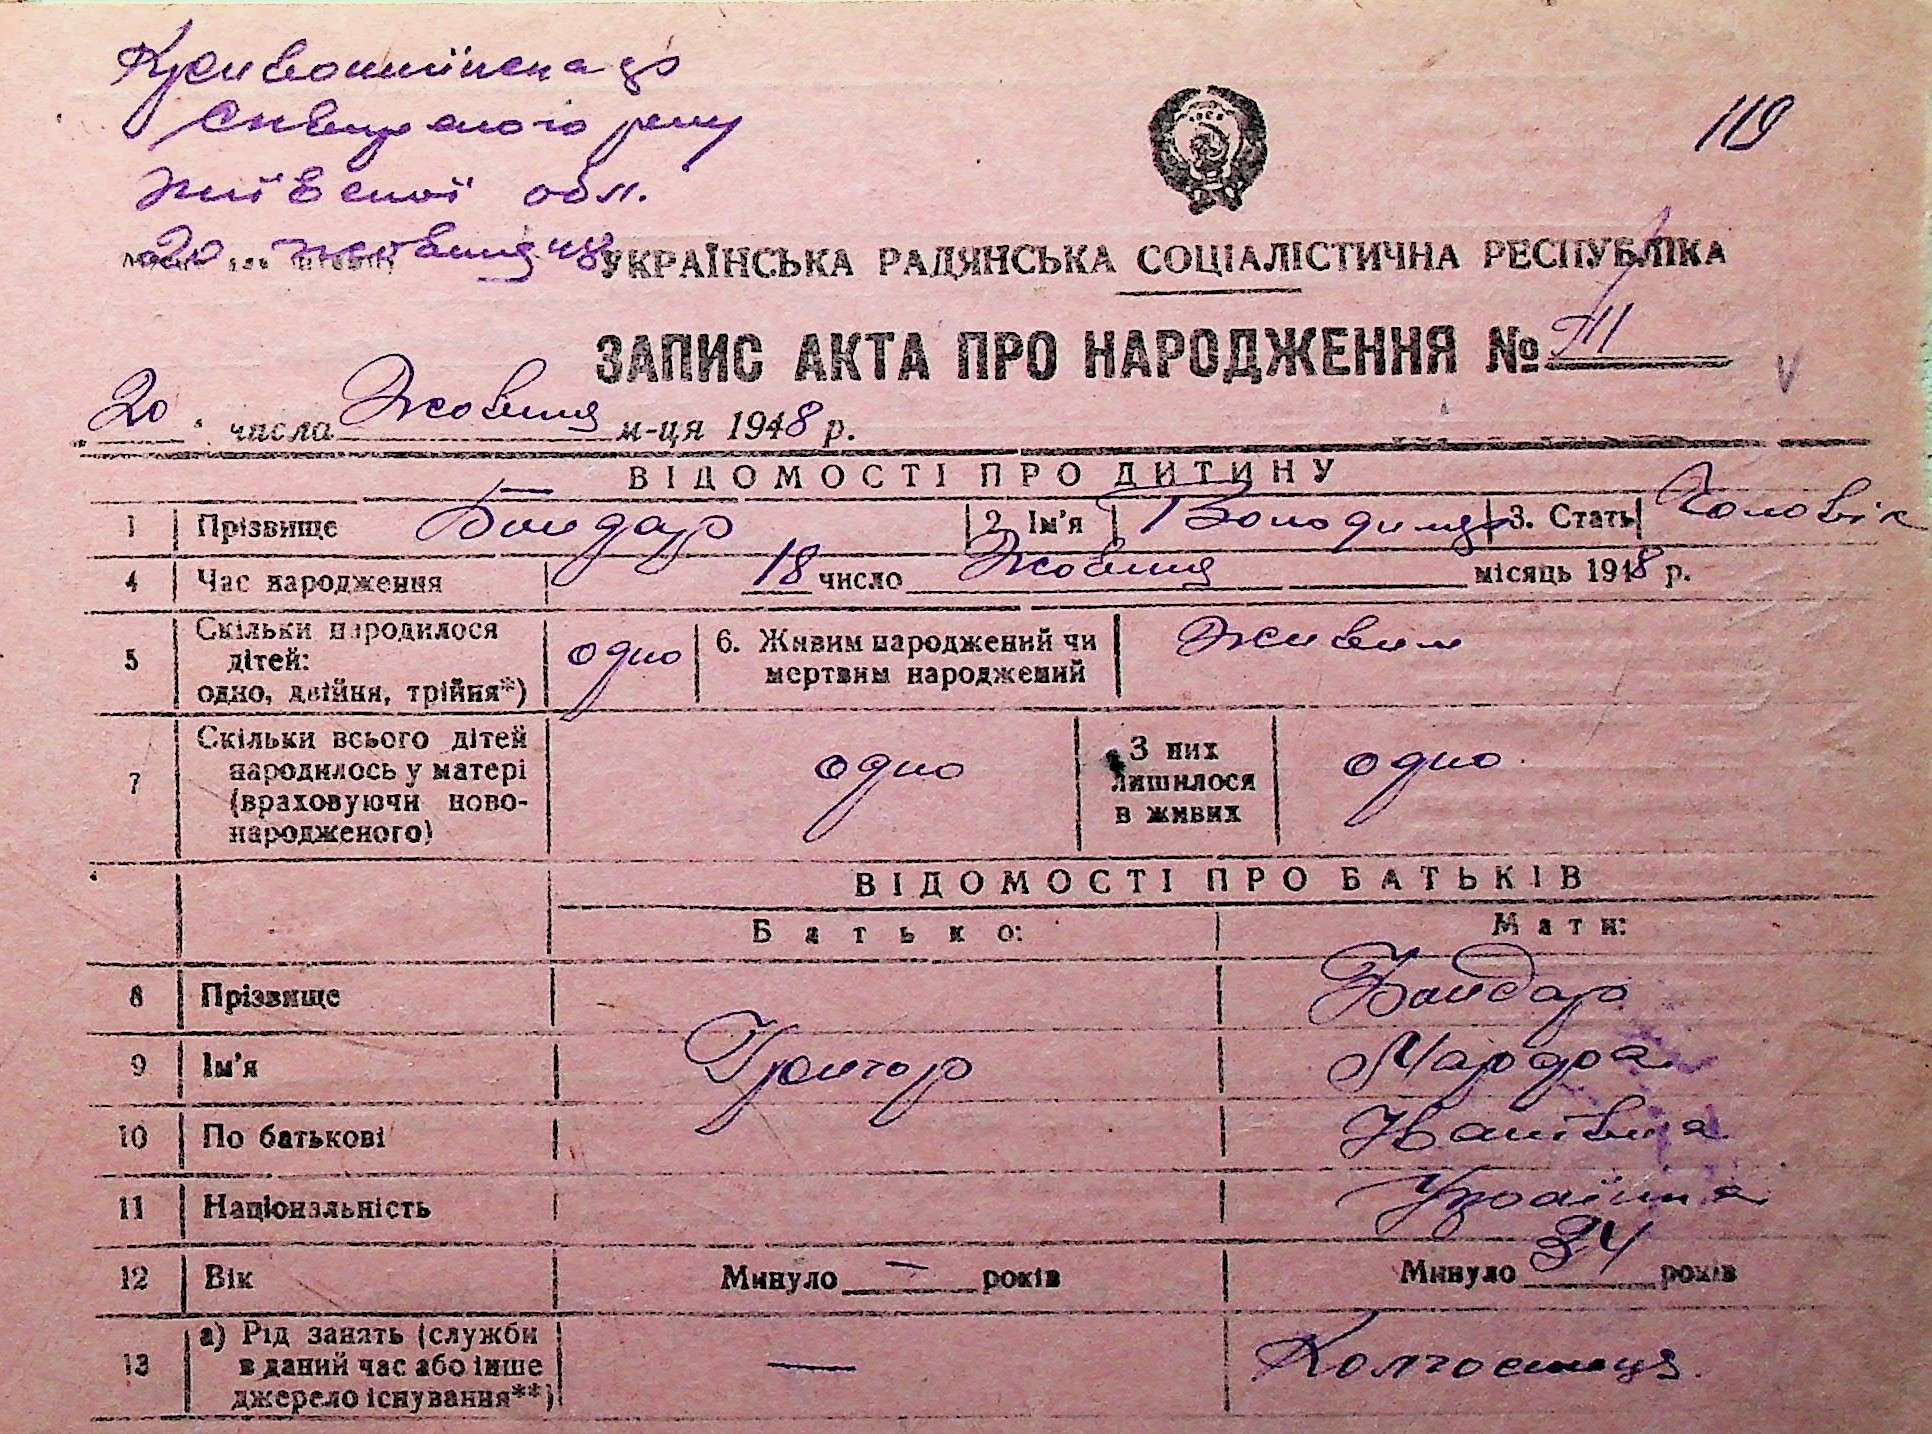 Кривошиїнська с/р
Сквирського р-ну
Київської обл.
20 жовтня 48
119
УКРАЇНСЬКА РАДЯНСЬКА СОЦІАЛІСТИЧНА РЕСПУБЛІКА
ЗАПИС АКТА ПРО НАРОДЖЕННЯ №
„20" числа Жовтня м-ця 1948 р.
ВІДОМОСТІ ПРО ДИТИНУ
1 Прізвище Бондар 2. Ім'я Володимир 3. Стать Чоловік
4 Час народження 18 число Жовтня місяць 1948 р.
5 Скільки народилося дітей: одно, двійня, трійня*) одно 6. Живим народжений чи мертвим народжений живим
7 Скільки всього дітей народилось у матері (враховуючи ново-народженого) одно З них лишилося в живих одно
ВІДОМОСТІ ПРО БАТЬКІВ
Батько: Мати:
8 Прізвище Бондар
9 Ім'я Григор Марфа
10 По батькові Іванівна
11 Національність Українка
12 Вік Минуло — років Минуло 34 років
13 а) Рід занять (служби в даний час або інше джерело існування**) — Колгоспниця